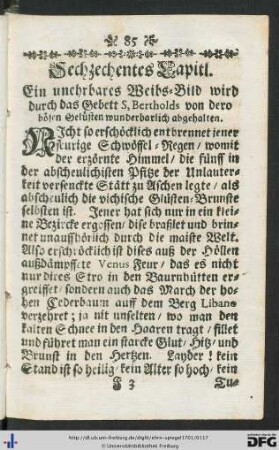 85
Sechzechentes Capitl.
Ein unehrbares Weibs-Bild wird
durch das Gebett S. Bertholds von dero
bösen Gelüsten wunderbarlich abgehalten.
NIcht so erschöcklich entbrennet jener
feurige Schwöffel-Regen / womit
der erzörnte Himmel / die fünff in
der abscheulichisten Pfitze der Unlauter-
keit versenckte Stätt zu Aschen legte / als
abscheulich die vichische Glüsten-Brunste
selbsten ist. Jener hat sich nur in ein klei-
ne Bezircke ergossen / dise braßlet und brin-
net unauffhörlich durch die maiste Welt.
Also erschröcklich ist dises auß der Höllen
außdämpffete Venus Feur / das es nicht
nur dires Stro in den Baurnhütten er-
greiffet / sondern auch das March der ho-
hen Cederbaum auff dem Berg Libans
verzehret; ja nit unselten / wo man den
kalten Schnee in den Haaren tragt / fillet
und führet man ein starcke Glut / Hitz / und
Brunst in den Hertzen. Layder! kein
Stand ist so heilig / kein Alter so hoch / kein
J 3 Tu-
http://dl.ub.uni-freiburg.de/diglit/ehrn-spiegel1701/0117